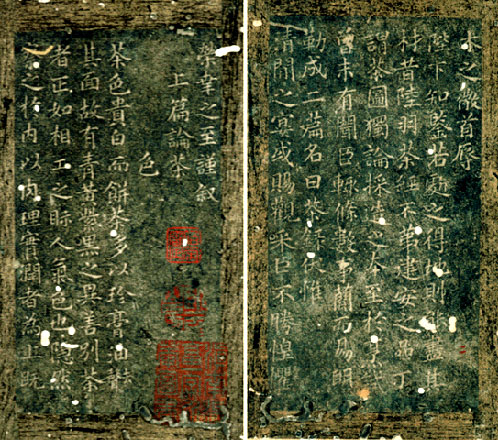 木之微首辱
陛下知鑒若處之得地則能盡其
材昔陸羽茶經不第建安之品丁
謂茶圖獨論採造之本至於烹試
曾未有聞臣輒條數事簡而易明
勒成二篇名曰茶錄伏惟
清閒之宴或賜觀采臣不勝惶懼
榮幸之至謹敘
上篇論茶
色
茶色貴白而餅茶多以珍膏油去聲
其面故有青黃紫黑之異善別茶
者正如相工之眡人氣色也隱然
察之於內以肉理實潤者為上既